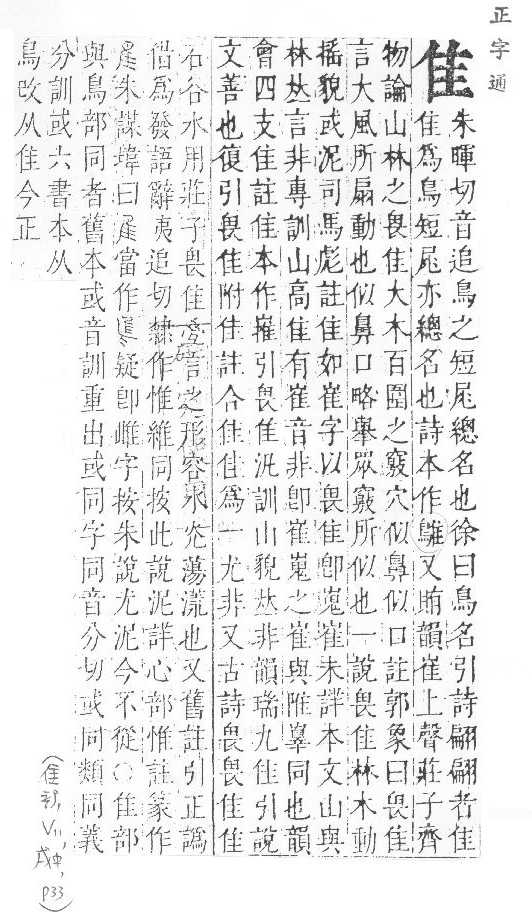 正字通
隹
朱暉切音追鳥之短尾總名也徐曰鳥名引詩翩翩者隹
隹爲鳥短尾亦總名也詩本作鵻又賄韻崔上聲莊子齊
物論山林之畏隹大木百圍之竅穴似鼻似口註郭象曰畏隹
言大風所扇動也似鼻口略舉眾竅所似也一說畏隹林木動
搖貌或泥司馬彪註隹如崔字以畏隹卽嵬崔未詳本文山與
林𠀤言非專訓山高隹有崔音非卽崔嵬之崔與陮㠑同也韻
會四支隹註隹本作嶊引畏隹汎訓山貌𠀤非韻瑞九隹引說
文善也復引畏隹附佳註合佳隹爲一尤非又古詩畏畏隹隹
石谷水用莊子畏隹變言之形容水㳘蕩㵽也又舊註引正譌
借爲發語辭夷追切隸作惟維同按此說泥詳心部惟註篆作
朱謀㙔曰當作疑卽雎字按朱說尤泥今不從○隹部
與鳥部同者舊本或音訓重出或同字同音分切或同類同義
分訓或六書本从
鳥改从隹今正
(隹部, V11, 戌中, P33)